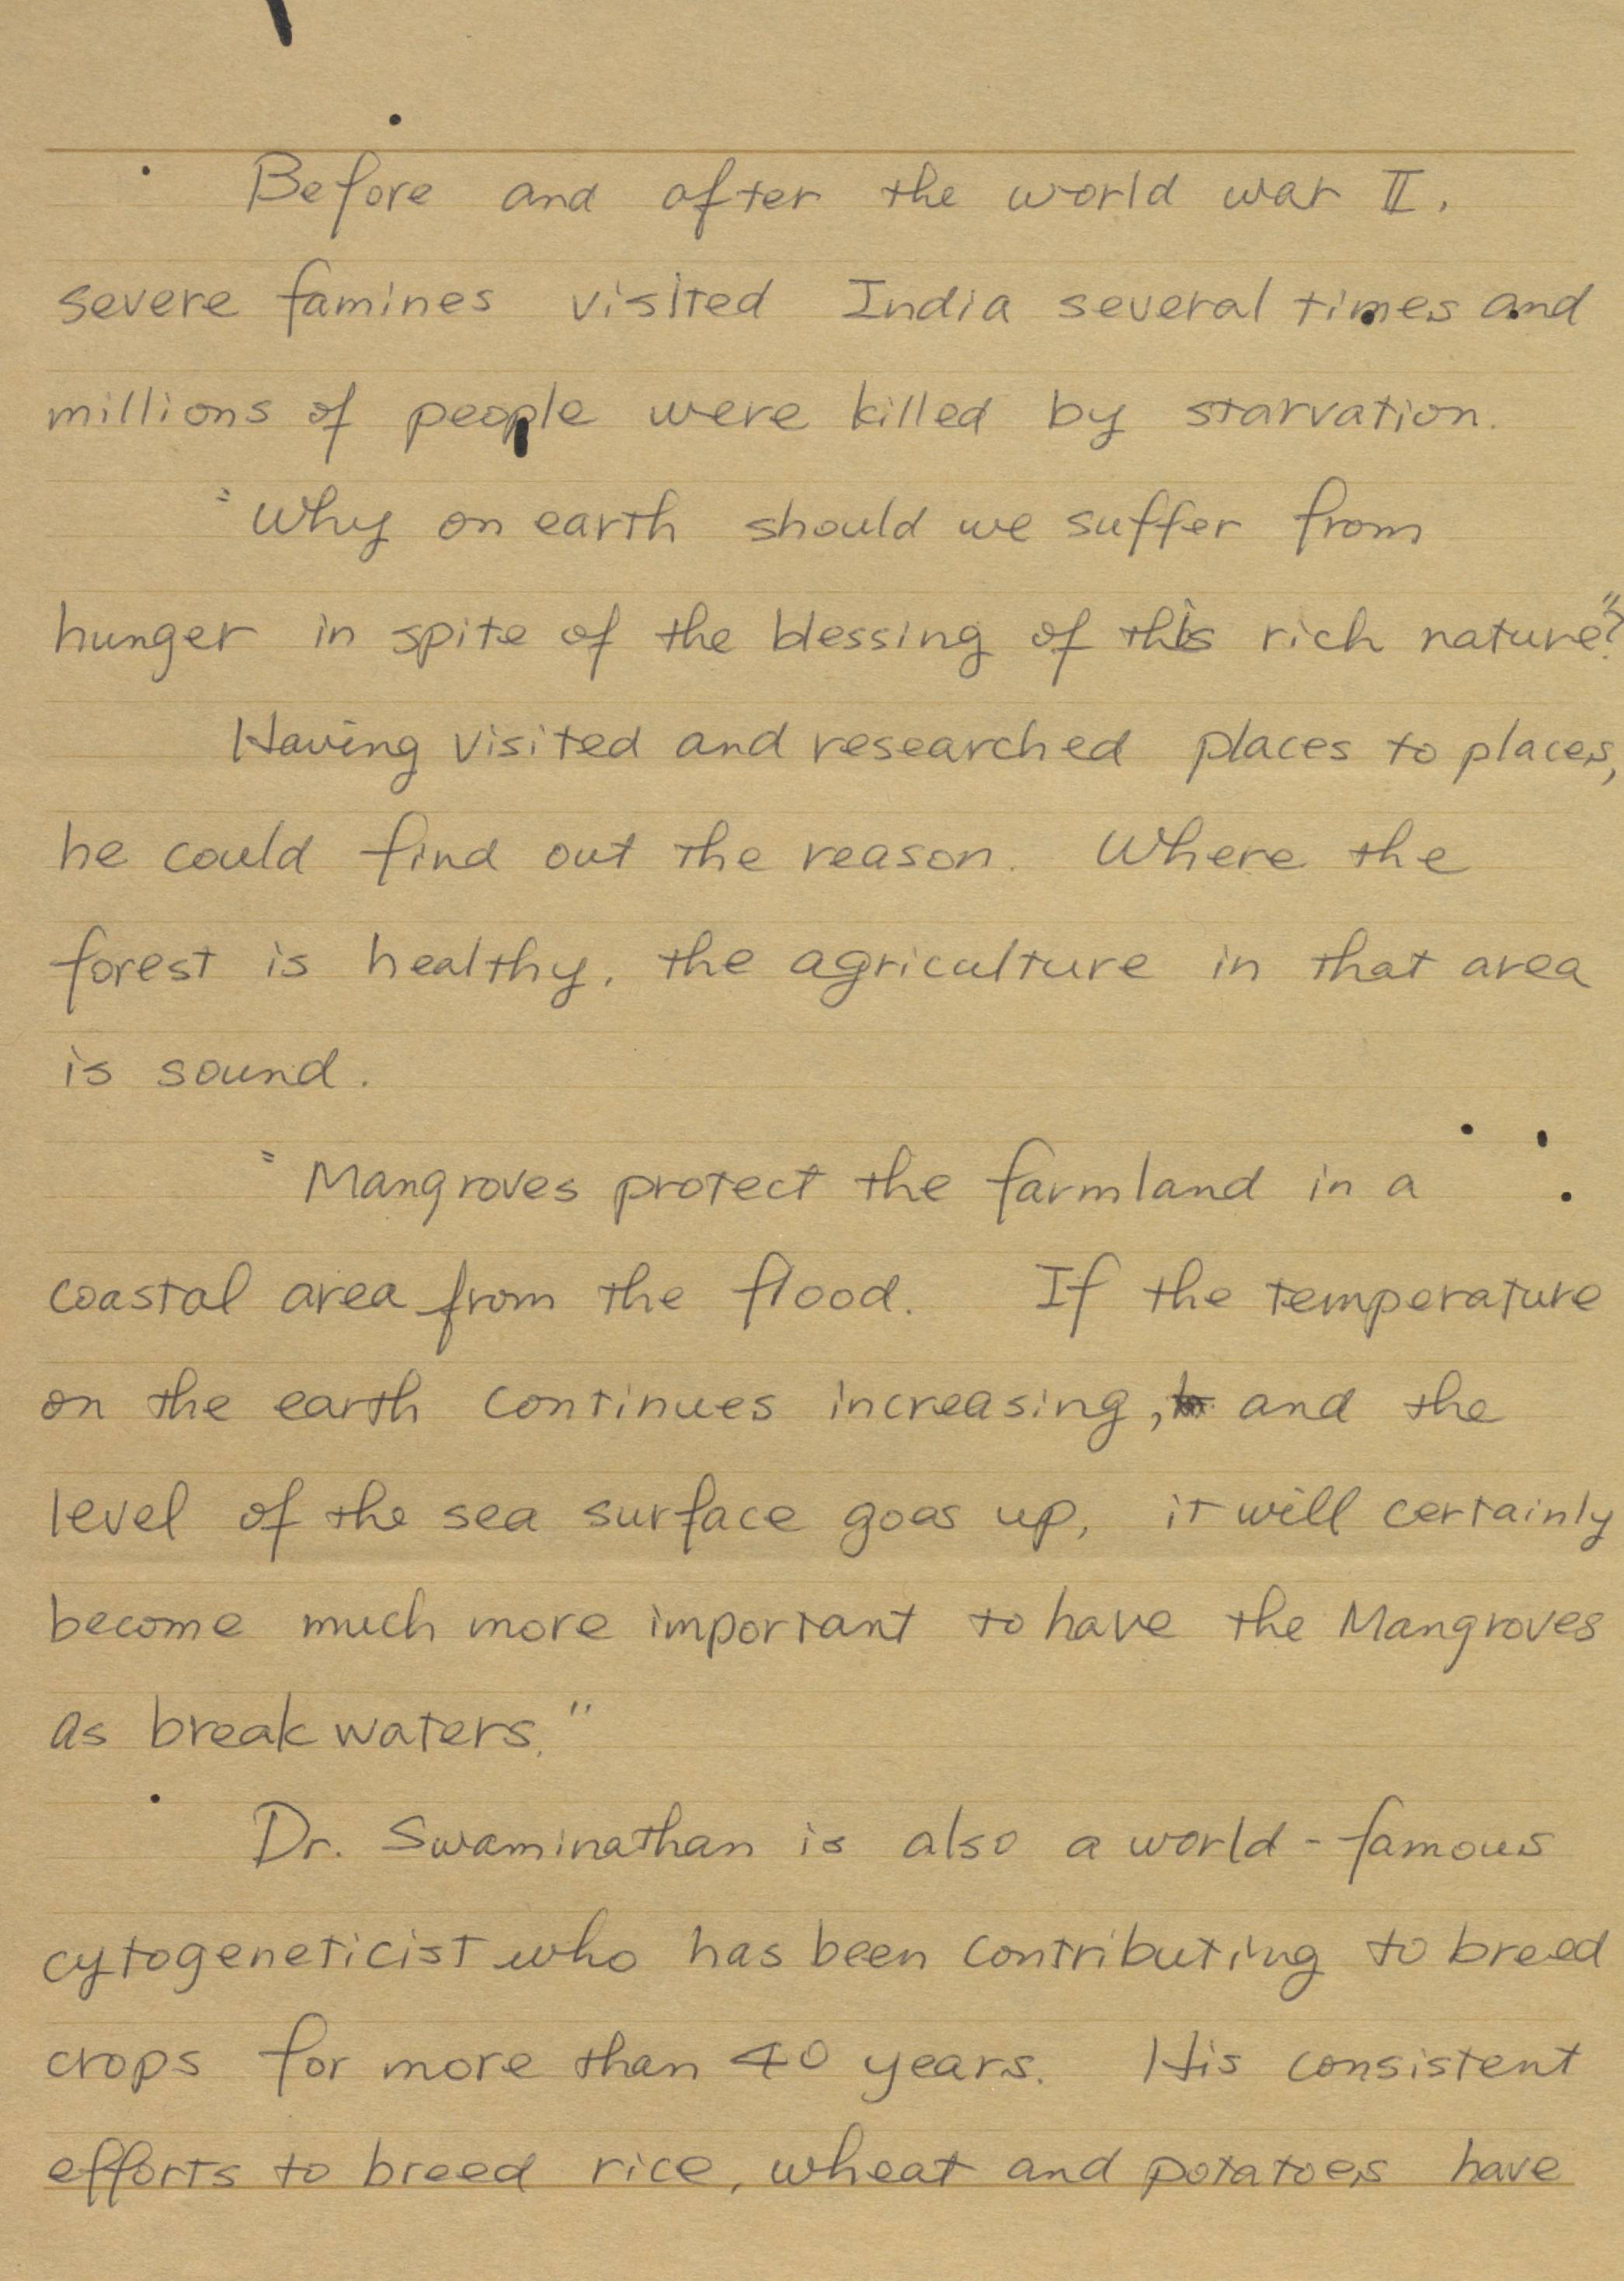 Before and after the world war II,
severe famines visited India several times and
millions of people were killed by starvation.
"Why on earth should we suffer from
hunger in spite of the blessing of this rich nature?"
Having visited and researched places to places,
he could find out the reason. Where the
forest is healthy, the agriculture in that area
is sound.
"Mangroves protect the farmland in a
coastal area from the flood. If the temperature
on the earth continues increasing, and the
level of the sea surface goes up, it will certainly
become much more important to have the Mangroves
as breakwaters."
Dr. Swaminathan is also a world-famous
cytogeneticist who has been contributing to breed
crops for more than 40 years. His consistent
efforts to breed rice, wheat and potatoes have